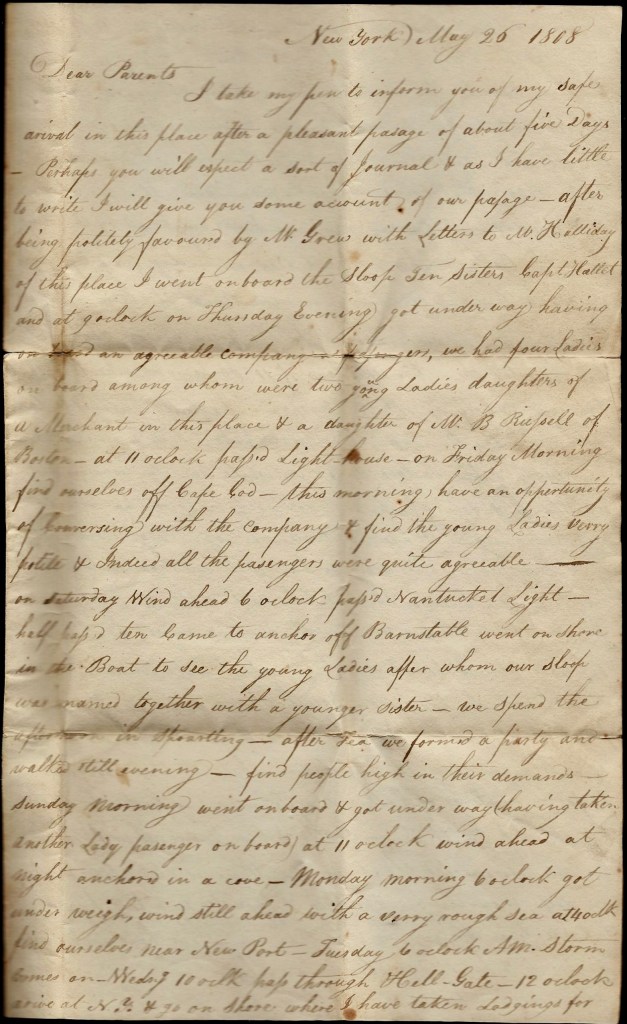 New York) May 26 1808
Dear Parents
I take my pen to inform you of my safe
arival in this place after a pleasant pasage of about five Days
– Perhaps you will expect a sort of Journal & as I have little
to write I will give you some acount of our passage – after
being politely favourd by Mr Grew with Letters to Mr. Holliday
of this place I went onboard the Sloop Ten Sisters Capt Hallet
and at 9 oclock on Thursday Evening got under way having
on board an agreeable company of, we had four Ladies
on board among whom were two yong Ladies daughters of
a Merchant in this place & a daughter of Mr. B Russell of
Boston – at 11 oclock pass'd Light-house – on Friday Morning
find ourselves off Cape Cod – this morning have an opportunity
of Conversing with the company & find the young Ladies verry
polite & Indeed all the pasengers were quite agreeable —
on saturday Wind ahead 6 oclock pass'd Nantucket Light –
half pass'd ten Came to anchor off Barnstable went on shore
in the Boat to see the young Ladies after whom our sloop
was named together with a younger sister – we spend the
afternoon in – after Tea we formed a party and
walked still evening – find people high in their demands –
Sunday morning went onboard & got under way (having taken
another Lady pasenger on board) at 11 oclock wind ahead at
night anchored in a cove – Monday morning 6 oclock got
under weigh, wind still ahead with a verry rough sea at 4 oclk
find ourselves near New Port – Tuesday 6 oclock AM. Storm
comes on – Wedsy 10 oclk pass through Hell-Gate – 12 oclock
arive at N.Y. & go on shore where I have taken Lodgings for